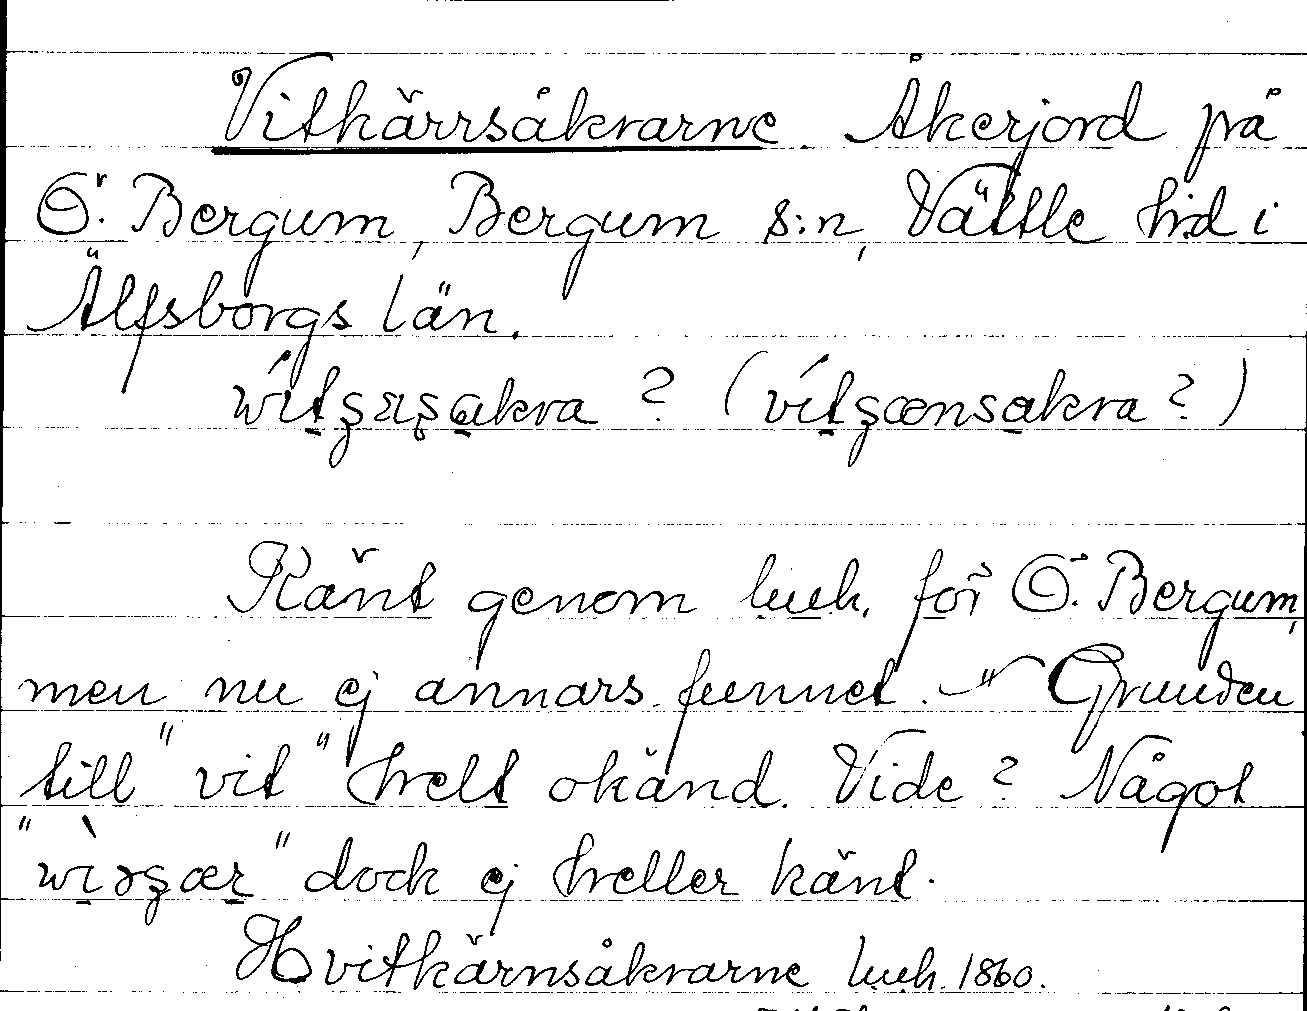 Vitkärrsåkrarne. Åkerjord på
Ö. Bergum, Bergum s:n, Vättle hd i
Älfsborgs län.
? ( ? )
Känt genom luuh. för Ö. Bergum,
men nu ej annars funnet. – Grunden
till "vit" helt okänd. Vide? Något
dock ej heller känt.
Hvitkärnsåkrarne luuh. 1860.